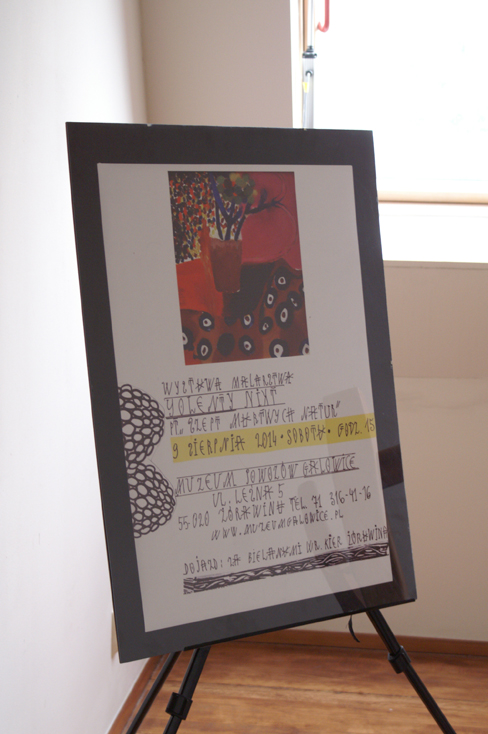 WYSTAWA MALARSTWA
JOLENTY NIXT
PT. SZEPT MARTWYCH NATUR"
9 SIERPNIA 2014 • SOBOTA • GODZ. 15
MUZEUM POWOZÓW GAŁOWICE
UL. LEŚNA 5
55-020 ŻÓRAWINA TEL 71 316-41-76
WWW.MUZEUMGALOWICE.PL
DOJAZD: ZA BIELANAMI WR. KIER ŻÓRAWINA